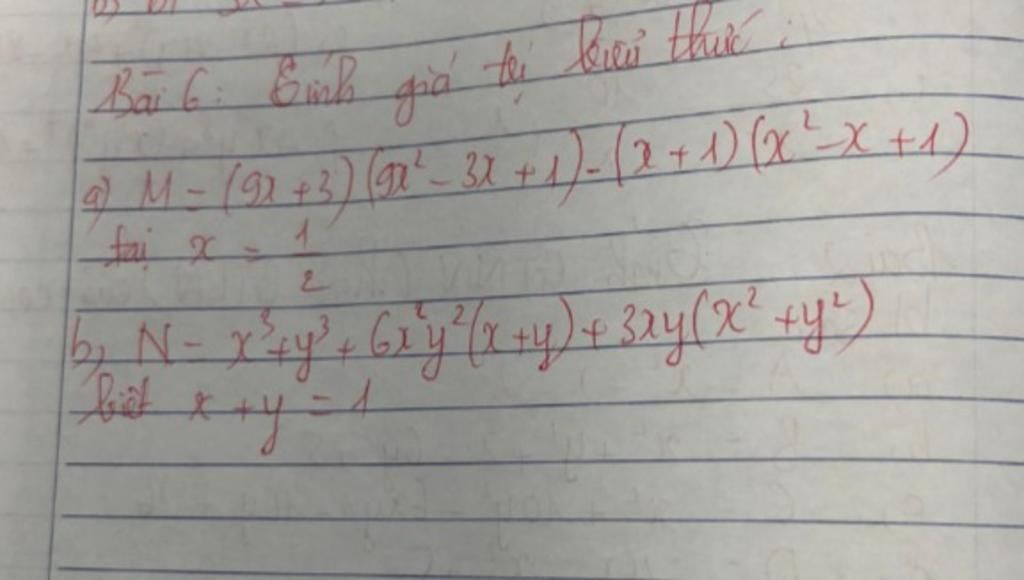 Bài 6: Tính giá trị biểu thức:
a) M = (9x + 3)(9x² - 3x + 1) - (x + 1)(x² - x + 1)
tại x = 1/2
b, N = x³ + y³ + 6x²y²(x + y) + 3xy(x² + y²)
biết x + y = 1